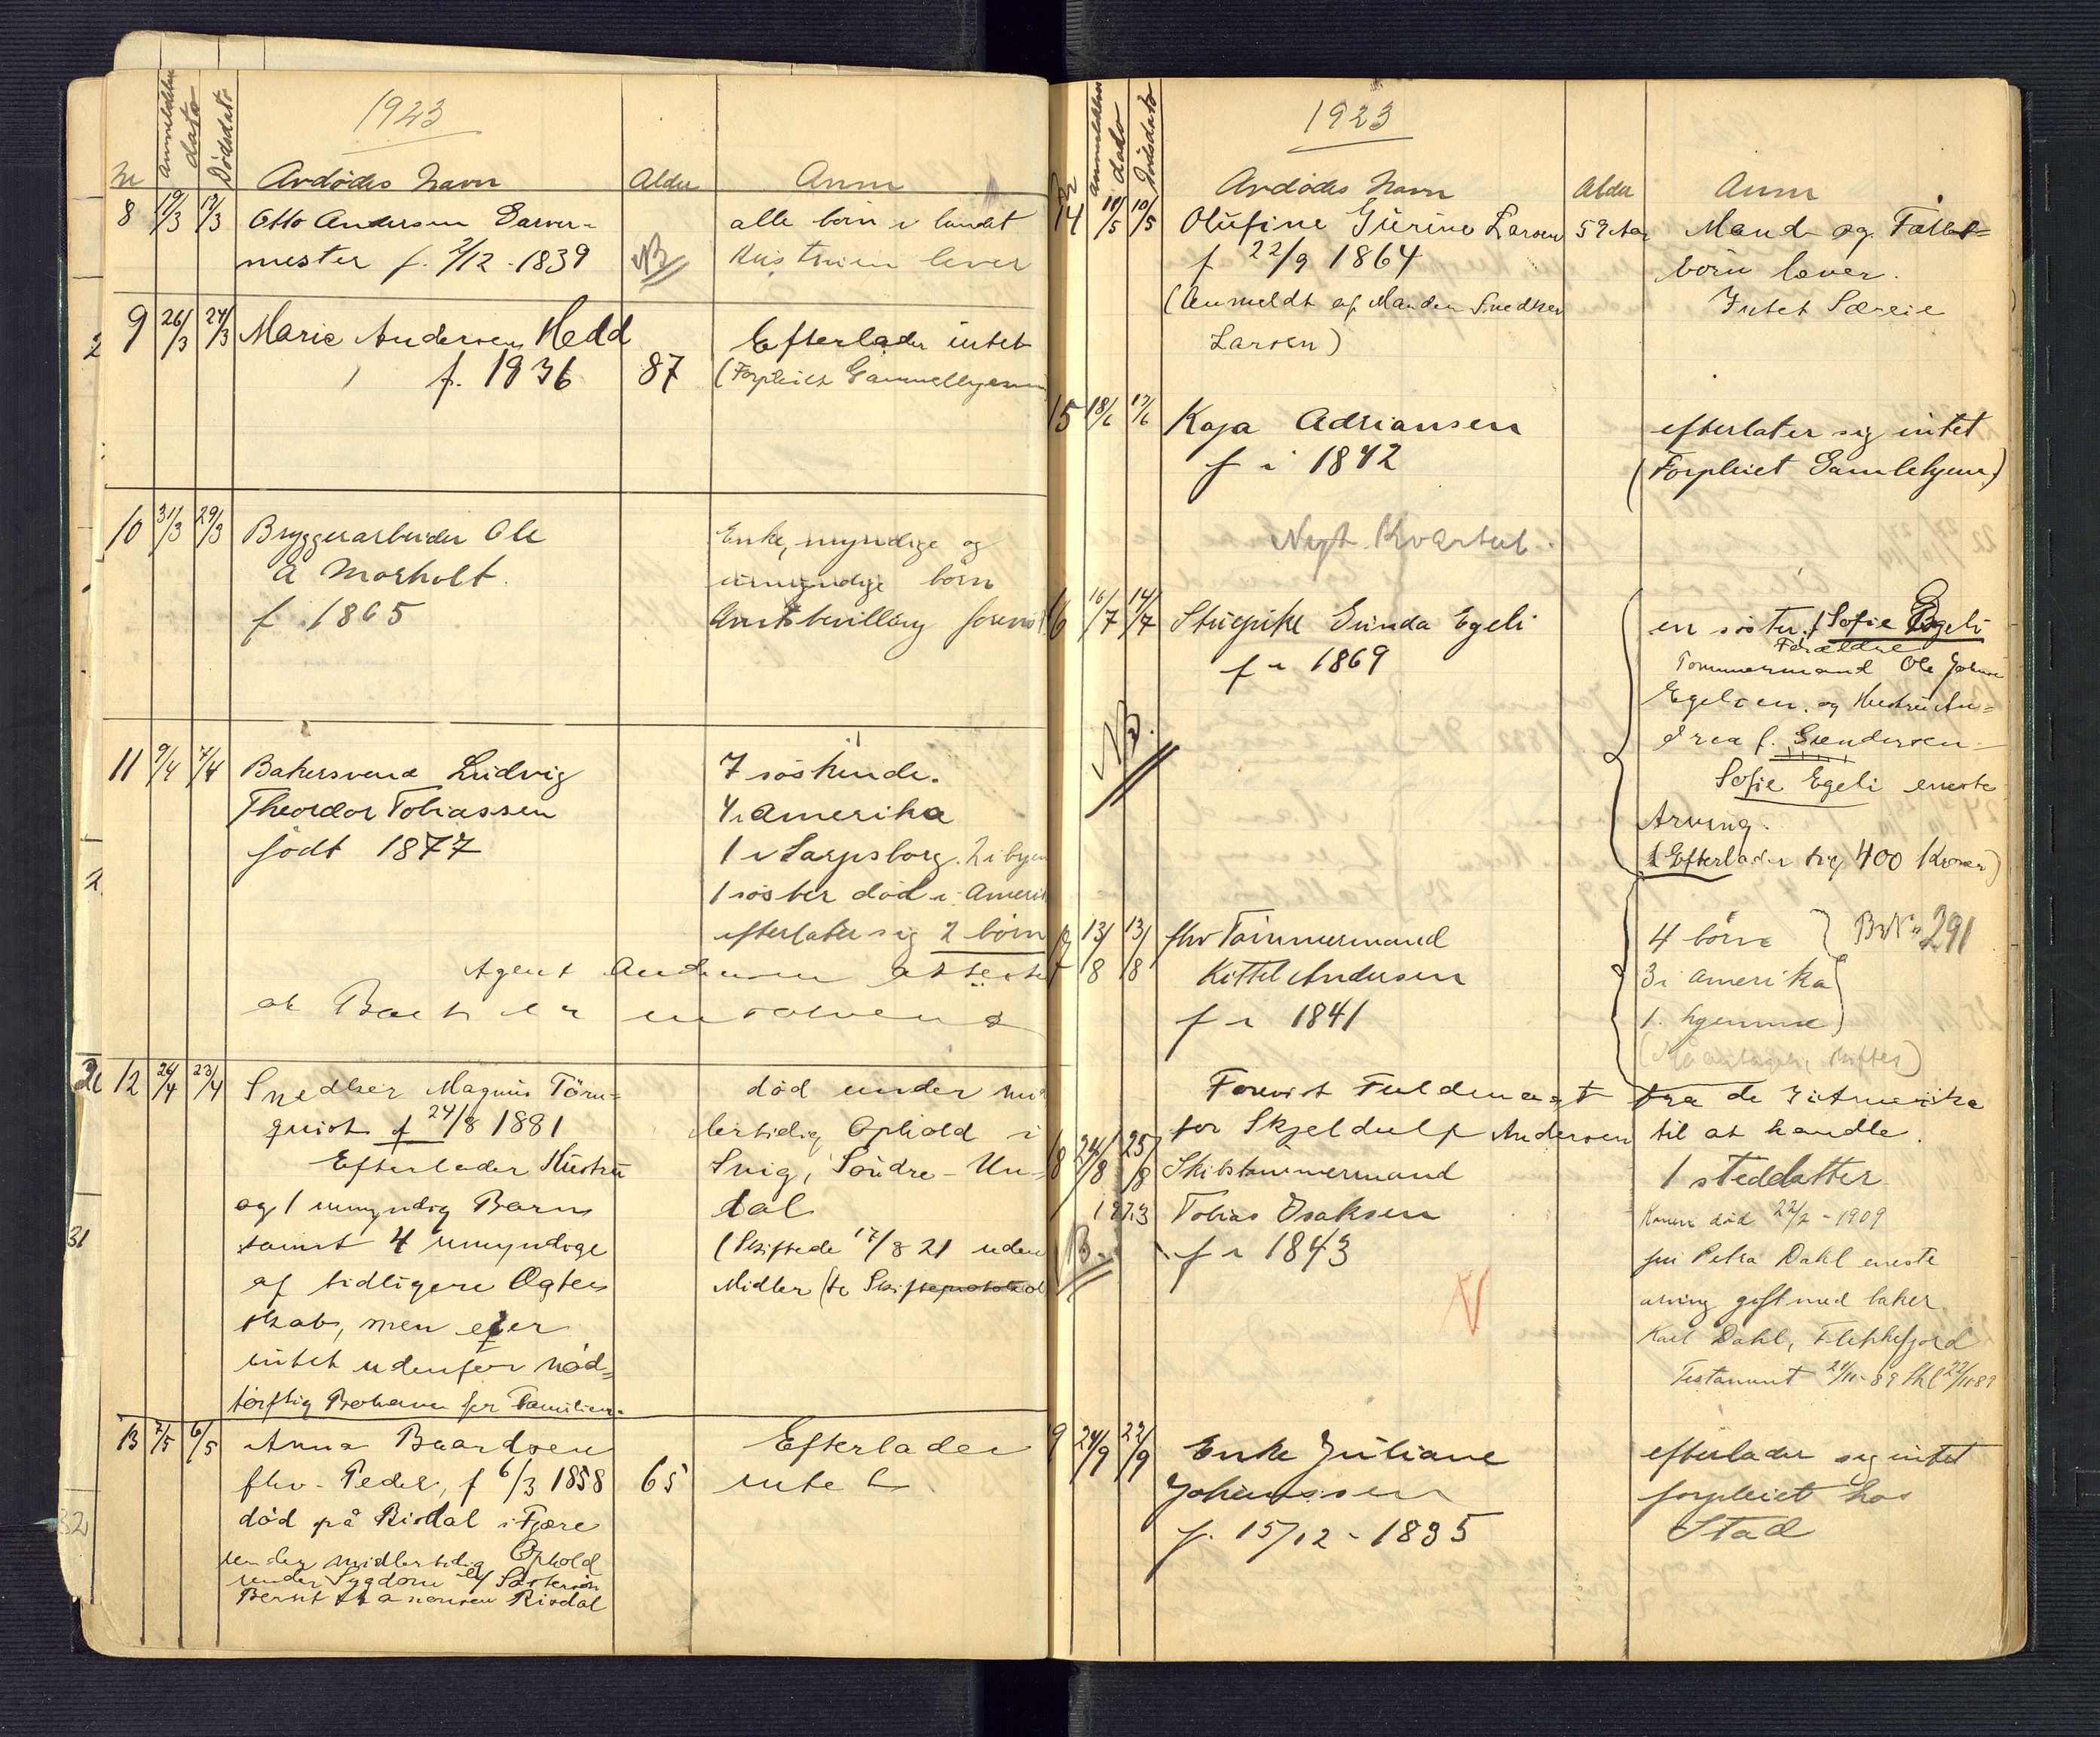 1923
Nr Anmeldelses dato Dødsdato Avdødes Navn Alder Anm
8 19/3 17/3 Otto Andersen Garver-
mester f. 2/12 - 1839 NB
alle børn i landet
Hustruen lever
9 26/3 24/3 Marie Andersen Hedd
f. 1936 87
Efterlader intet
(Forpleiet Gammelhjemm
10 31/3 29/3 Bryggerarbeider Ole
A Morholt.
f. 1865
Enke, myndige og
umyndige børn
Amtsbevilling forevist
11 9/4 7/4 Bakersvend Ludvig
Theordor Tobiassen
født 1877
7 søskende.
4 i Amerika
1 i Sarpsborg. 2 i byen
1 søster død i Amerik
efterlater sig 2 børn
Agent Andersen attester
at Boet er insolvent
12 24/4 23/4 Snedker Magnus Törn-
quist f 24/8 1881
Efterlader Hustru
og 1 umyndig Barn
samt 4 umyndige
af tidligere Ægte
skab, men eier
intet udenfor nød-
tørftig Bohave for Familien.
død under mid
lertidig Ophold i
Svig, Søndre-Un-
dal
(Skiftede 17/8 21 uden
Midler (se
13 7/5 6/5 Anna Baardsen
fhv. Peder, f 6/3 1858 65
død på Risdal i Fjære
under midlertidig Ophold
under Sygdom
Bernt Risdal
Efterlader
intet
1923
Nr Anmeldelses dato Dødsdato Avdødes Navn Alder Anm
14 11/5 10/5 Olufine Gurine Larsen 59 Aar
f 22/9 1864
(Anmeldt af Manden Snedker
Larsen)
Mand og Fælles-
børn lever.
Intet Særeie
15 18/6 17/6 Kaja Adriansen
f i 1842
efterlater sig intet
(Forpleiet Gamlehjem)
Nyt Kvartal.
16 16/7 14/7 Stuepike Gunda Egeli
f i 1869
NB.
en søster, Sofie Egeli
Forældre
Tømmermand Ole Johan
Egelsen. og Hustru An-
drea f. Gundersen
Sofie Egeli eneste
Arving.
(Efterlader sig 400 Kroner)
17 13/8 13/8 fhv Tømmermand
Kittel Andersen
f i 1841
4 børn } BrNo 291
3 i Amerika
1. hjemme
Forevist Fuldmagt fra de 3 i Amerika
for Skjeldulf Andersen til at handle.
18 24/8 25/8 Skibstømmermand
1923 Tobias Isaksen
NB. f i 1843
1 steddatter
Konen død 22/2 - 1909
fru Petra Dahl eneste
arving gift med baker
Karl Dahl, Flekkefjord
Testament 21/11-89 thl 22/11 89
9 24/9 22/9 Enke Juliane
Johanssen
f. 15/12 - 1835
efterlader sig intet
forpleiet hos
Stad